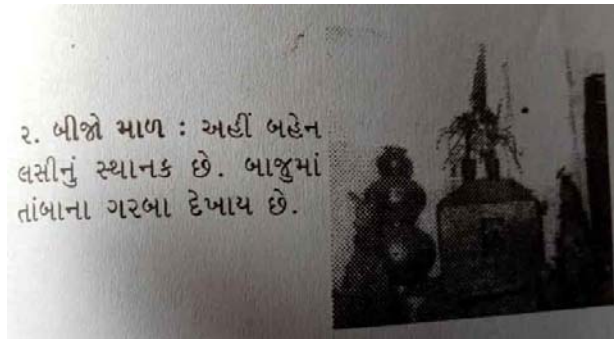 ૨. બીજો માળ : અહીં બહેન
લસીનું સ્થાનક છે. બાજુમાં
તાંબાના ગરબા દેખાય છે.